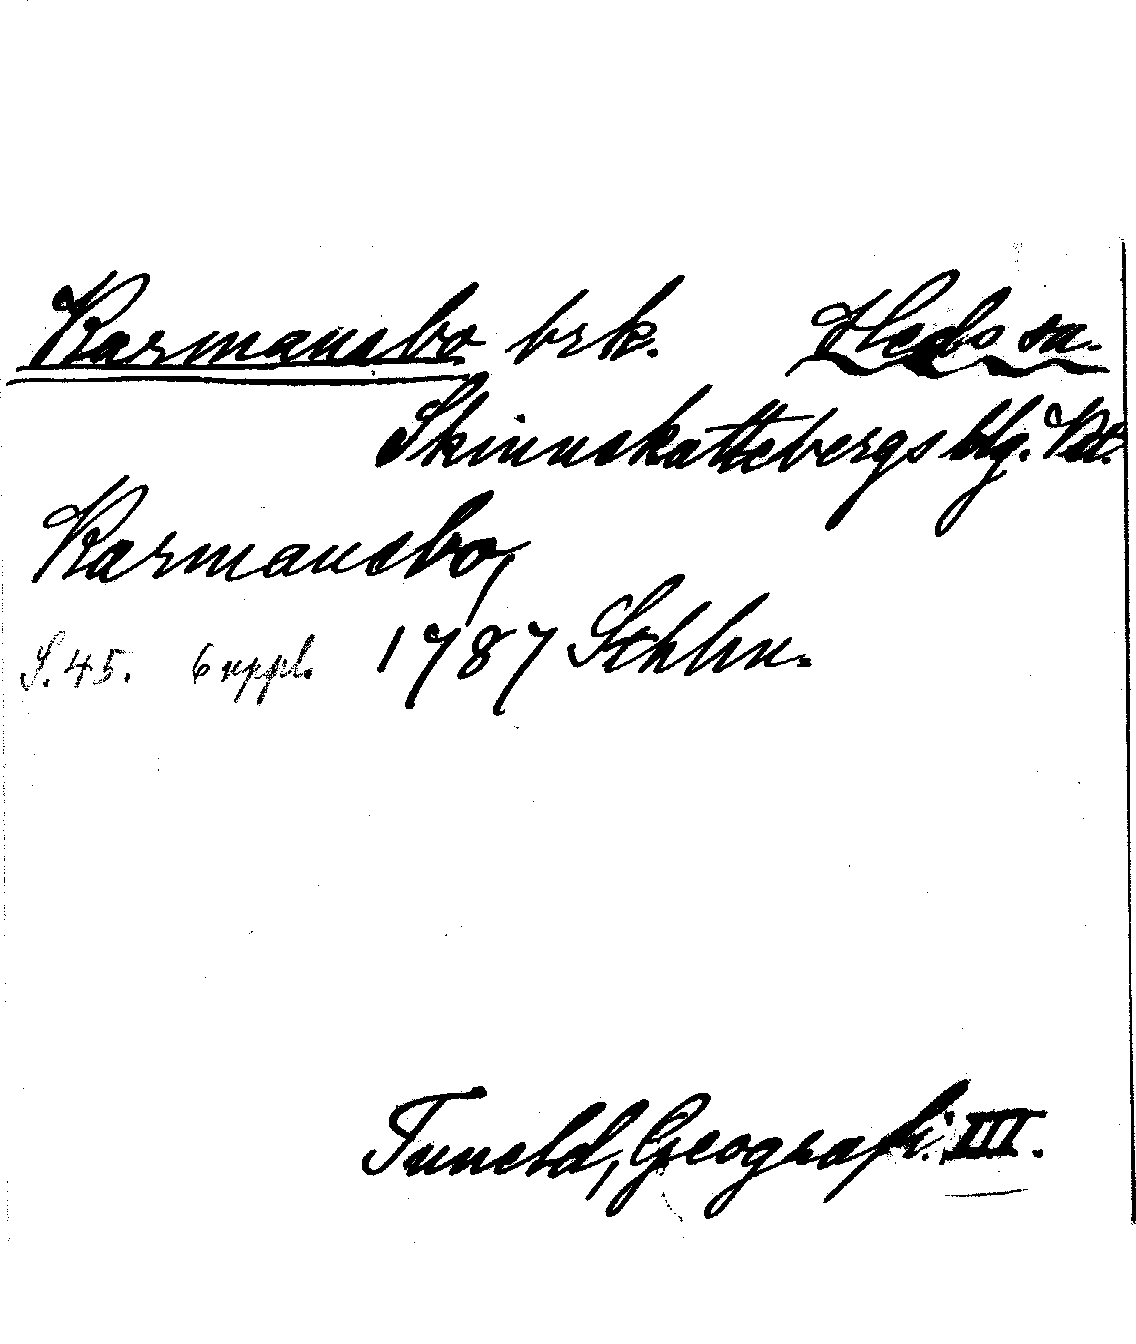 Karmansbo brk. Heds sn.
Skinnskattebergs blg. Vstl.
Karmansbo,
S. 45. 6 uppl. 1787 Sthlm.
Tuneld, Geografi III.